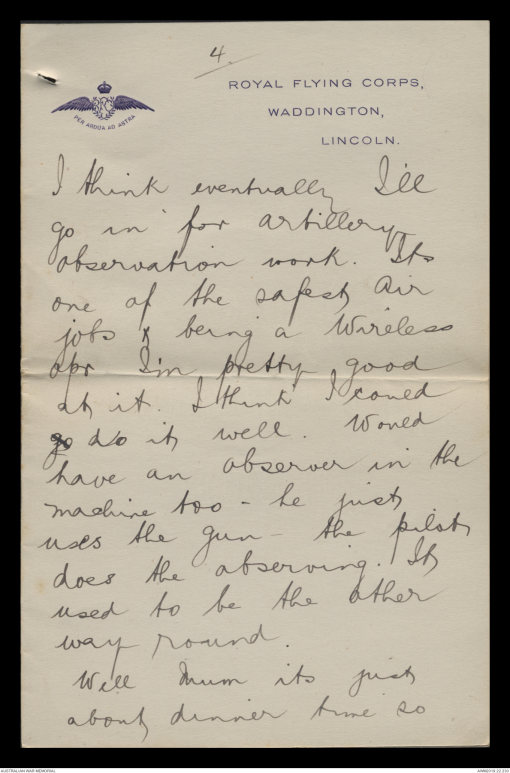 4.
ROYAL FLYING CORPS,
WADDINGTON,
LINCOLN.
PER ARDUA AD ASTRA
I think eventually I'll
go in for artillery
observation work. Its
one of the safest air
jobs & being a Wireless
opr I'm pretty good
at it. I think I could
do it well. Would
have an observer in the
machine too - he just
uses the gun - the pilot
does the observing. It
used to be the other
way round.
Well Mum its just
about dinner time so
AUSTRALIAN WAR MEMORIAL